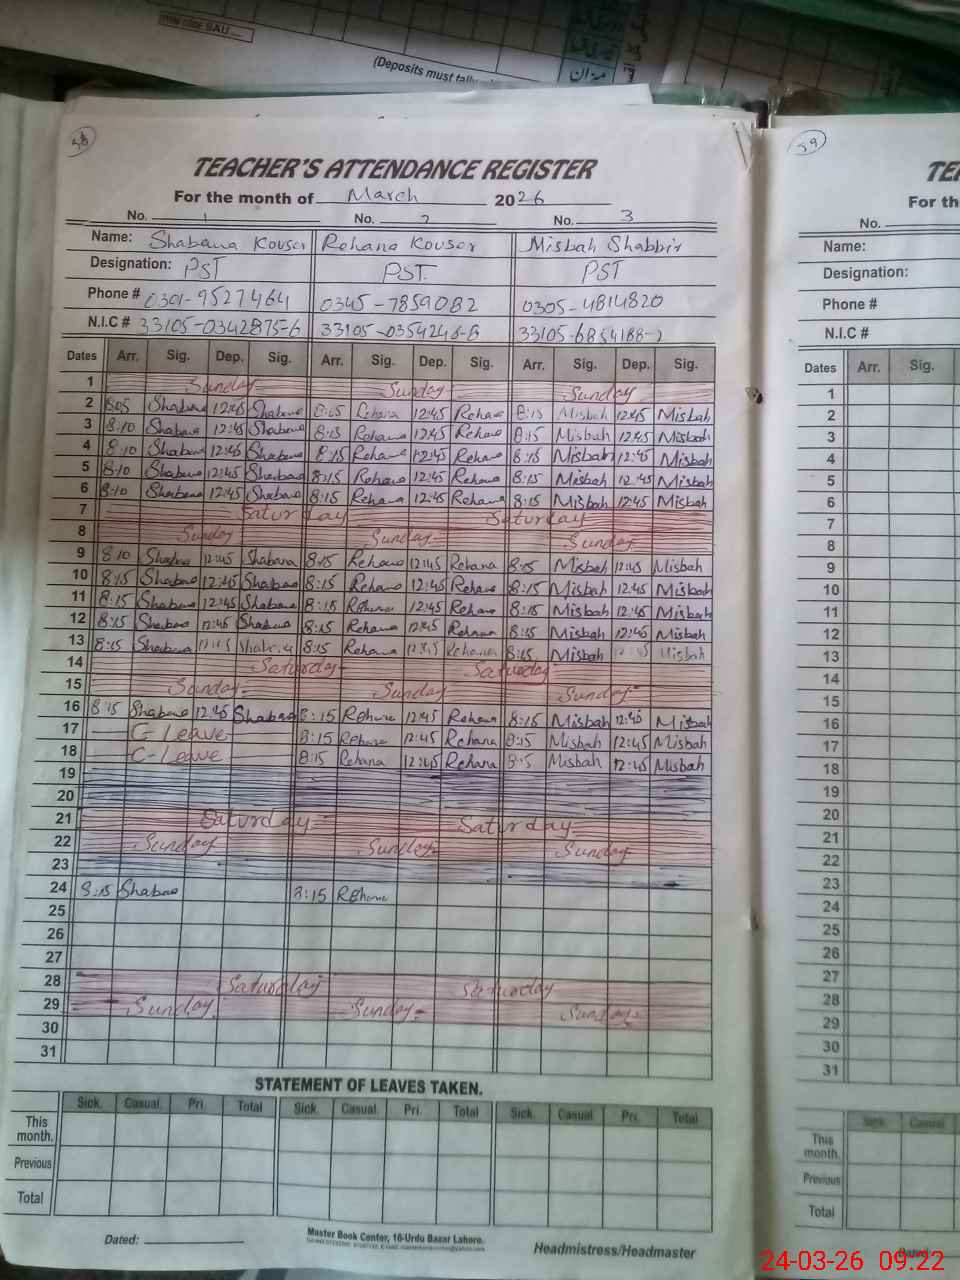 ITEM CODE SAU
(Deposits must tally
میزان
58
TEACHER'S ATTENDANCE REGISTER
For the month of March 2026
No. 1 No. 2 No. 3
Name: Shabana Kouser Rehana Kouser Misbah Shabbir
Designation: PST PST PST
Phone # 0301-9527464 0345-7859082 0305-4814820
N.I.C # 33105-0342875-6 33105-0354246-8 33105-6854188-2
Dates Arr. Sig. Dep. Sig. Arr. Sig. Dep. Sig. Arr. Sig. Dep. Sig.
1 Sunday Sunday Sunday
2 8:05 Shabana 12:45 Shabana 8:15 Rehana 12:45 Rehana 8:15 Misbah 12:45 Misbah
3 8:10 Shabana 12:45 Shabana 8:15 Rehana 12:45 Rehana 8:15 Misbah 12:45 Misbah
4 8:10 Shabana 12:45 Shabana 8:15 Rehana 12:45 Rehana 8:15 Misbah 12:45 Misbah
5 8:10 Shabana 12:45 Shabana 8:15 Rehana 12:45 Rehana 8:15 Misbah 12:45 Misbah
6 8:10 Shabana 12:45 Shabana 8:15 Rehana 12:45 Rehana 8:15 Misbah 12:45 Misbah
7 Saturday Saturday
8 Sunday Sunday Sunday
9 8:10 Shabana 12:45 Shabana 8:15 Rehana 12:45 Rehana 8:15 Misbah 12:45 Misbah
10 8:15 Shabana 12:45 Shabana 8:15 Rehana 12:45 Rehana 8:15 Misbah 12:45 Misbah
11 8:15 Shabana 12:45 Shabana 8:15 Rehana 12:45 Rehana 8:15 Misbah 12:45 Misbah
12 8:15 Shabana 12:45 Shabana 8:15 Rehana 12:45 Rehana 8:15 Misbah 12:45 Misbah
13 8:15 Shabana 12:45 Shabana 8:15 Rehana 12:45 Rehana 8:15 Misbah 12:45 Misbah
14 Saturday Saturday
15 Sunday Sunday Sunday
16 8:15 Shabana 12:45 Shabana 8:15 Rehana 12:45 Rehana 8:15 Misbah 12:45 Misbah
17 C-Leave 8:15 Rehana 12:45 Rehana 8:15 Misbah 12:45 Misbah
18 C-Leave 8:15 Rehana 12:45 Rehana 8:15 Misbah 12:45 Misbah
19
20
21 Saturday Saturday
22 Sunday Sunday Sunday
23
24 8:15 Shabana 8:15 Rehana
25
26
27
28 Saturday Saturday
29 Sunday Sunday Sunday
30
31
STATEMENT OF LEAVES TAKEN.
Sick. Casual. Pri. Total Sick. Casual. Pri. Total Sick. Casual. Pri. Total
This month.
Previous
Total
Dated:
Master Book Center, 16-Urdu Bazar Lahore.
Headmistress/Headmaster
59
TE
For th
No.
Name:
Designation:
Phone #
N.I.C #
Dates Arr. Sig.
1
2
3
4
5
6
7
8
9
10
11
12
13
14
15
16
17
18
19
20
21
22
23
24
25
26
27
28
29
30
31
Sick. Casual.
This month.
Previous
Total
24-03-26 09:22